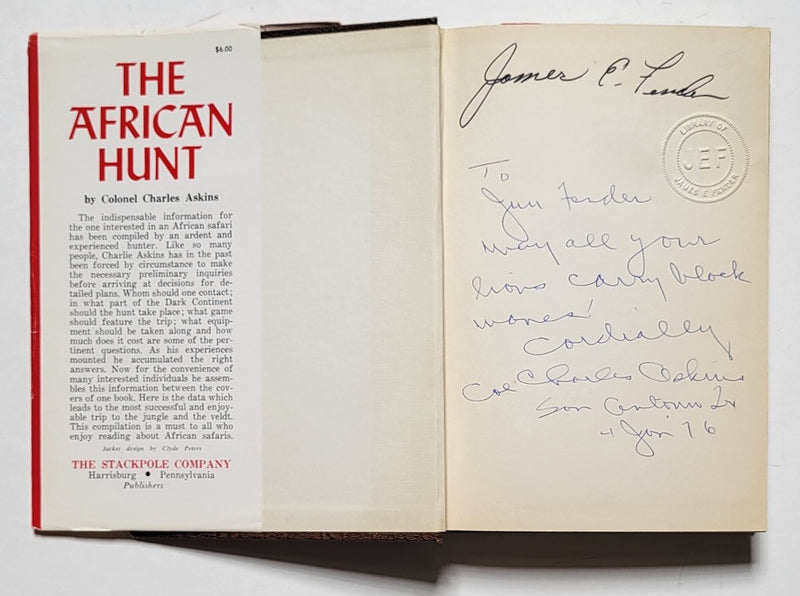 $6.00
THE
AFRICAN
HUNT
by Colonel Charles Askins
The indispensable information for
the one interested in an African safari
has been compiled by an ardent and
experienced hunter. Like so many
people, Charlie Askins has in the past
been forced by circumstance to make
the necessary preliminary inquiries
before arriving at decisions for de-
tailed plans. Whom should one contact;
in what part of the Dark Continent
should the hunt take place; what game
should feature the trip; what equip-
ment should be taken along and how
much does it cost are some of the per-
tinent questions. As his experiences
mounted he accumulated the right
answers. Now for the convenience of
many interested individuals he assem-
bles this information between the cov-
ers of one book. Here is the data which
leads to the most successful and enjoy-
able trip to the jungle and the veldt.
This compilation is a must to all who
enjoy reading about African safaris.
Jacket design by Clyde Peters
THE STACKPOLE COMPANY
Harrisburg • Pennsylvania
Publishers
James E. Fender
LIBRARY OF
JEF
JAMES E FENDER
To
Jim Fender
may all your
lions carry black
manes!
Cordially
Col Charles Askins
San Antonio Tx
4 Jan 76